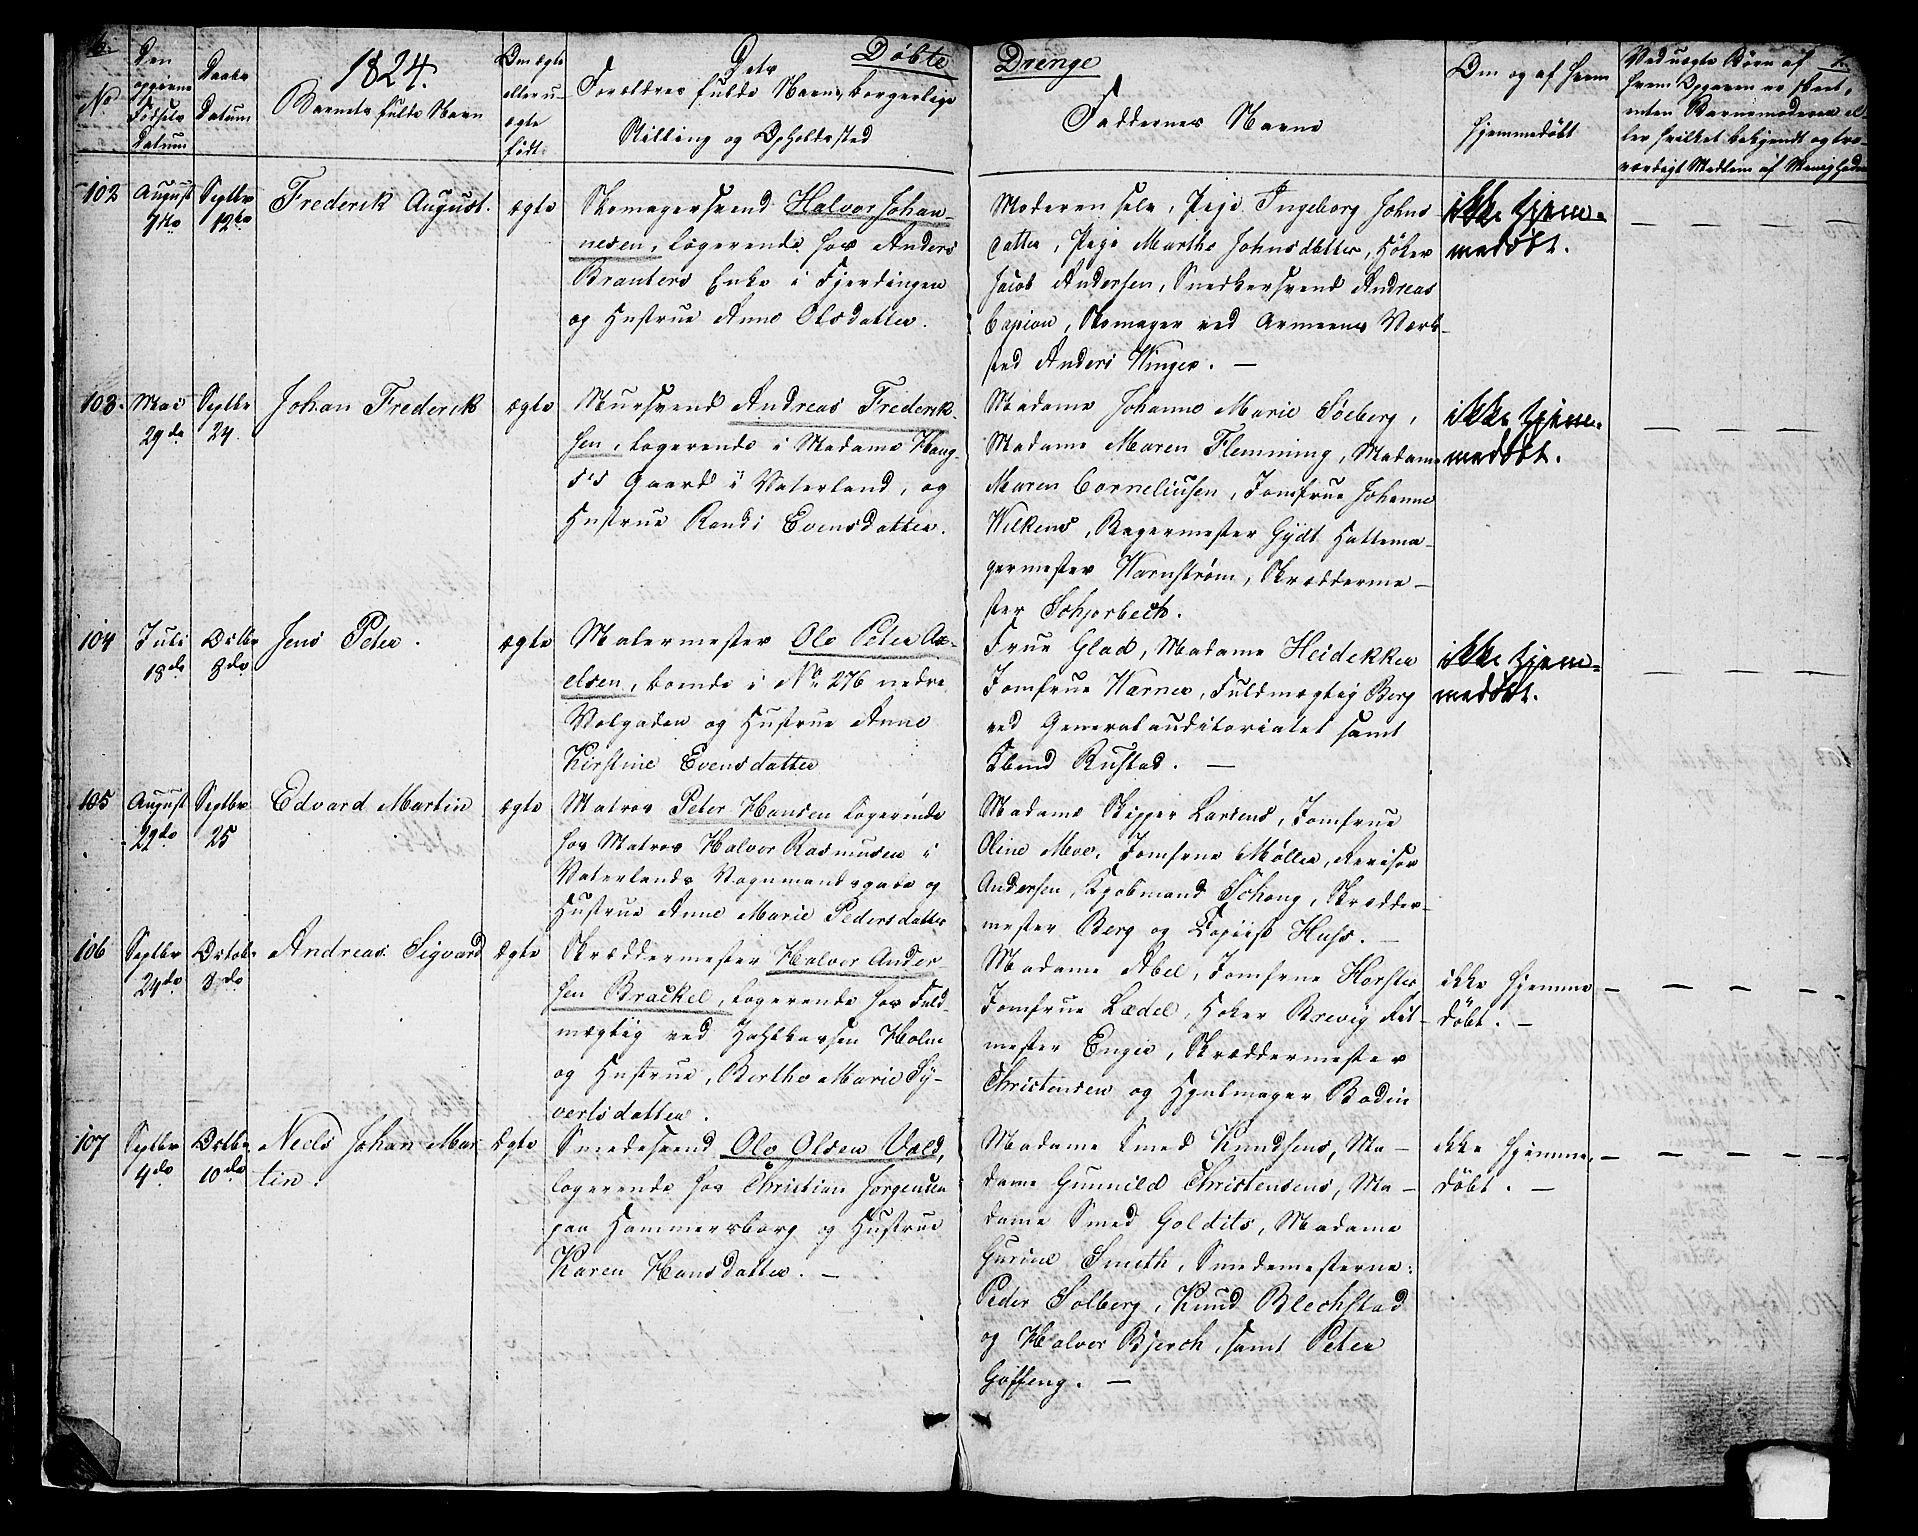 Døbte Drenge
1824.
No
Den opgivne Fødsels Datum
Daabs Datum
Barnets fulde Navn
Om ægte eller uægte født.
Dets Forældres fulde Navne, borgerlige
Stilling og Opholdssted
Faddernes Navne
Om og af hvem
hjemmedøbt
Ved uægte Børn af
hvem Opgaven er skeet,
enten Barnemoderen el-
ler hvilket bekjendt og tro-
værdigt Medlem af Menigheden
102
August 7de
Septbr 12te
Frederik August.
ægte
Skomagersvend Halvor Johan-
nesen, logerende hos Anders
Branters Enke i Fjerdingen
og Hustrue Anne Olsdatter.
Moderen selv, Pige Ingeborg Johns
datter, Pige Marthe Johnsdatter, Høker
Jacob Andersen, Snedkersvend Andreas
Capion, Skomager ved Armeens Værk-
sted Anders Winger. —
ikke hjem-
medøbt.
103.
Mai 29de
Septbr 24.
Johan Frederik
ægte
Mursvend Andreas Frederik-
sen, logerende i Madame Haug-
s's Gaard i Vaterland, og
Hustrue Randi Evensdatter.
Madame Johanne Marie Søeberg,
Madame Maren Flemming, Madame
Maren Corneliusen, Jomfrue Johanne
Wilkens, Bagermester Gydt, Hattema-
germester Warnstrøm, Skrædderme-
ster Schjorbech.
ikke hjem-
medøbt.
104
Juli 18de
Octbr 8de
Jens Peter.
ægte
Malermester Ole Peter Ax-
elsen, boende i No 276 nedre
Volgaden og Hustrue Anne
Kirstine Evensdatter
Frue Glad, Madame Heidekker
Jomfrue Warner, Fuldmægtig Berg
ved Generalauditoriatet samt
Rustad. —
ikke hjem-
medøbt.
105
August 22de
Septbr 25
Edvard Martin
ægte
Matros Peter Hansen logerende
hos Matros Halvor Rasmusen i
Vaterlands Vognmandsgade og
Hustrue Anne Marie Pedersdatter
Madame Skipper Larsens, Jomfrue
Oline Moe, Jomfrue Møller, Revisor
Andersen, Kjøbmand Schong, Skrædder-
mester Berg og Copiist Huss. —
106
Septbr 24de
Octob. 8de
Andreas Sigvard
ægte
Skræddermester Halvor Ander-
sen Brackel, logerende hos Fuld-
mægtig ved Zahlkassen Holm
og Hustrue, Berthe Marie Sy-
vertsdatter.
Madame Abel, Jomfrue Horster
Jomfrue Lædel, Høker Brevig Rit-
mester Enger, Skræddermester
Christensen og Hjulmager Bodin
ikke hjemme
døbt. —
107
Septbr 4de
Octbr 10de
Neels Johan Mar-
tin.
ægte
Smedesvend Ole Olsen Vold,
logerende hos Christian Jørgensen
paa Hammersborg og Hustrue
Karen Hansdatter. —
Madame Smed Knudsens, Ma-
dame Gunnild Christensens, Ma-
dame Smed Goldits, Madame
Gurine Smith, Smedemesterne:
Peder Solberg, Knud Blechstad
og Halvor Bjerch, samt Peter
Gaffeng. —
ikke hjemme
døbt. —